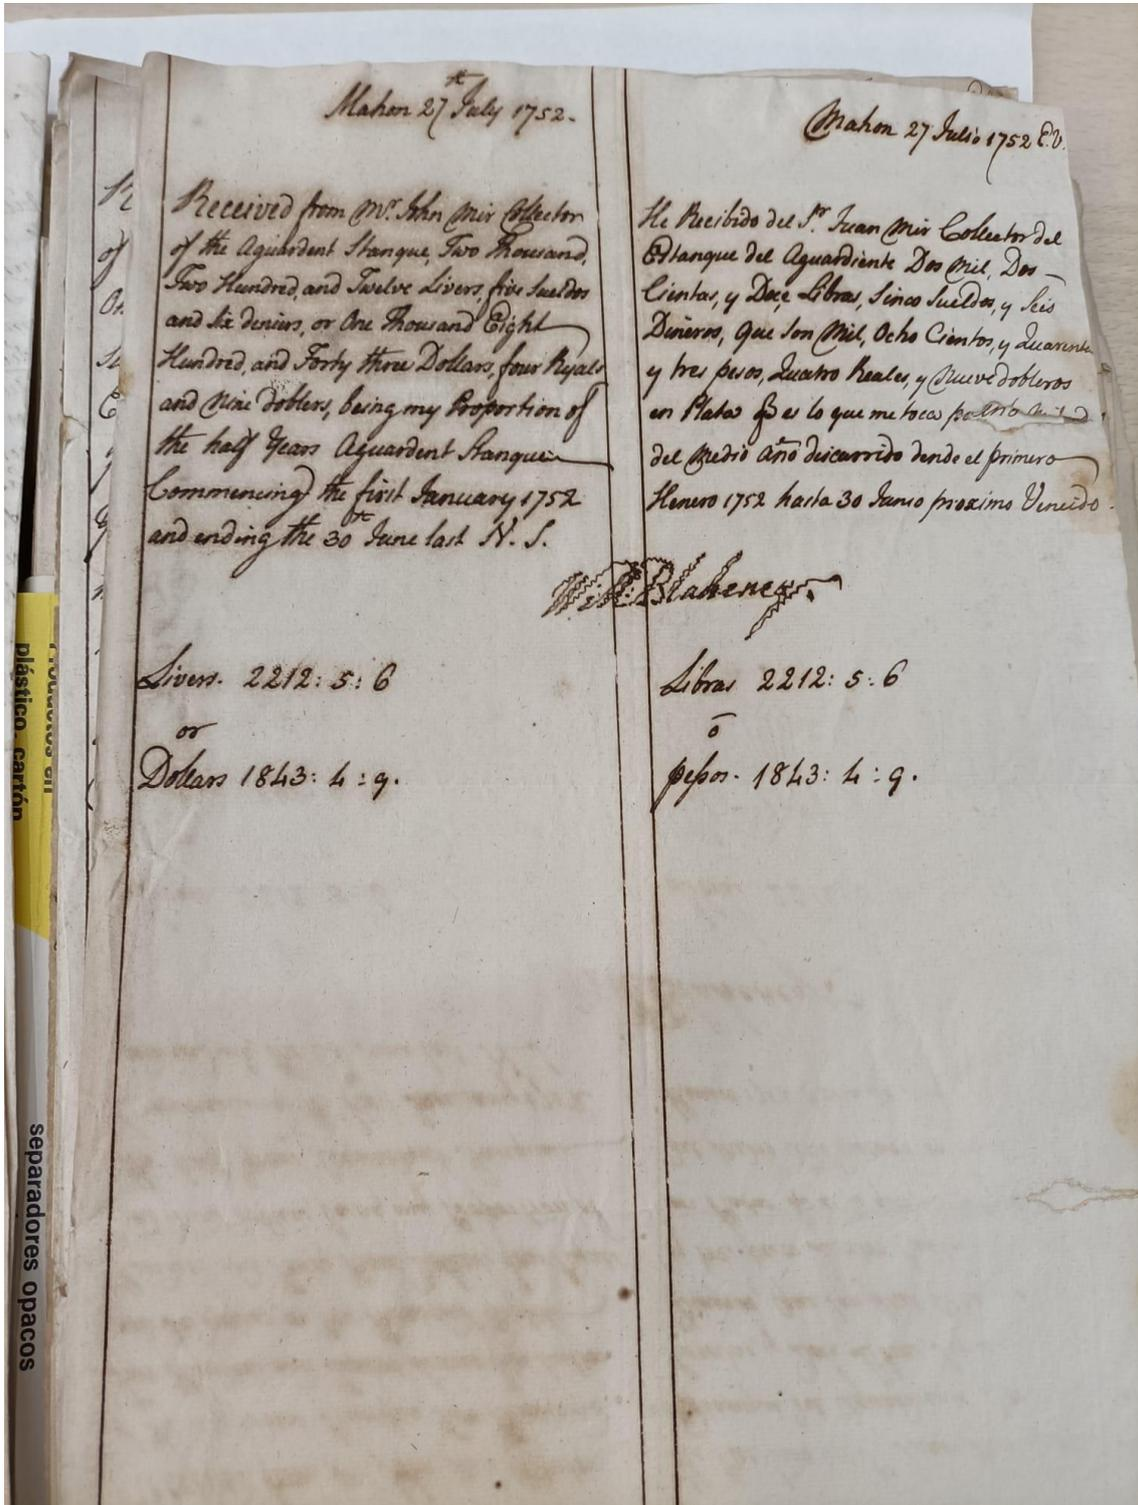 Mahon 27th July 1752.
Received from Mr. John Mir Collector
of the Aguardent Stanque, Two Thousand,
Two Hundred, and Twelve Livers, five Sueldos
and Six deniers, or One Thousand Eight
Hundred, and Forty three Dollars, four Ryals
and Nine doblers, being my Proportion of
the half Years Aguardent Stanque
Commencing the first January 1752
and ending the 30th June last N. S.
Livers. 2212: 5: 6
or
Dollars 1843: 4: 9.
Mahon 27 Julio 1752 E.V.
He Recibido del Sr. Juan Mir Collector del
Estanque del Aguardiente Dos Mil, Dos
Cientas, y Doce, Libras, Sinco Sueldos, y Seis
Dineros, que son Mil, Ocho Cientos, y Quarenta
y tres pesos, Quatro Reales, y Nueve dobleros
en Plata es lo que me toca
del Medio año discurrido dende el primero
Henero 1752 hasta 30 Junio proximo Vencido.
Blakeney.
Libras 2212: 5: 6
ō
pesos. 1843: 4: 9.
R
of
Productos en
plástico, cartón
separadores opacos